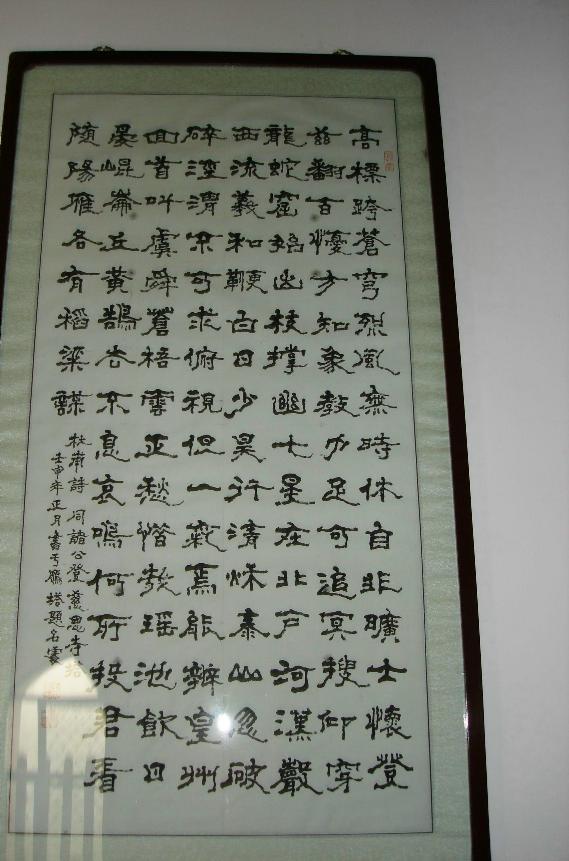 高標跨蒼穹烈風無時休自非曠士懷登
茲翻百懮方知象教力足可追冥搜仰穿
龍蛇窟始出枝撐幽七星在北戶河漢聲
西流羲和鞭白日少昊行清秋秦山忽破
碎涇渭不可求俯視但一氣焉能辨皇州
回首叫虞舜蒼梧雲正愁惜哉瑤池飲日
晏崐崙丘黃鵠去不息哀鳴何所投君看
随陽雁各有稻粱謀
杜甫詩 同諸公登慈恩寺塔
壬申年正月書于雁塔題名處